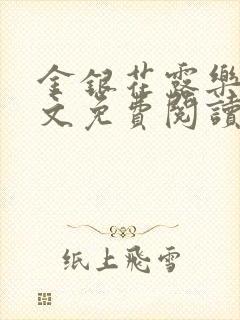 金银花露樂
文免費閱讀
纸上飛雪